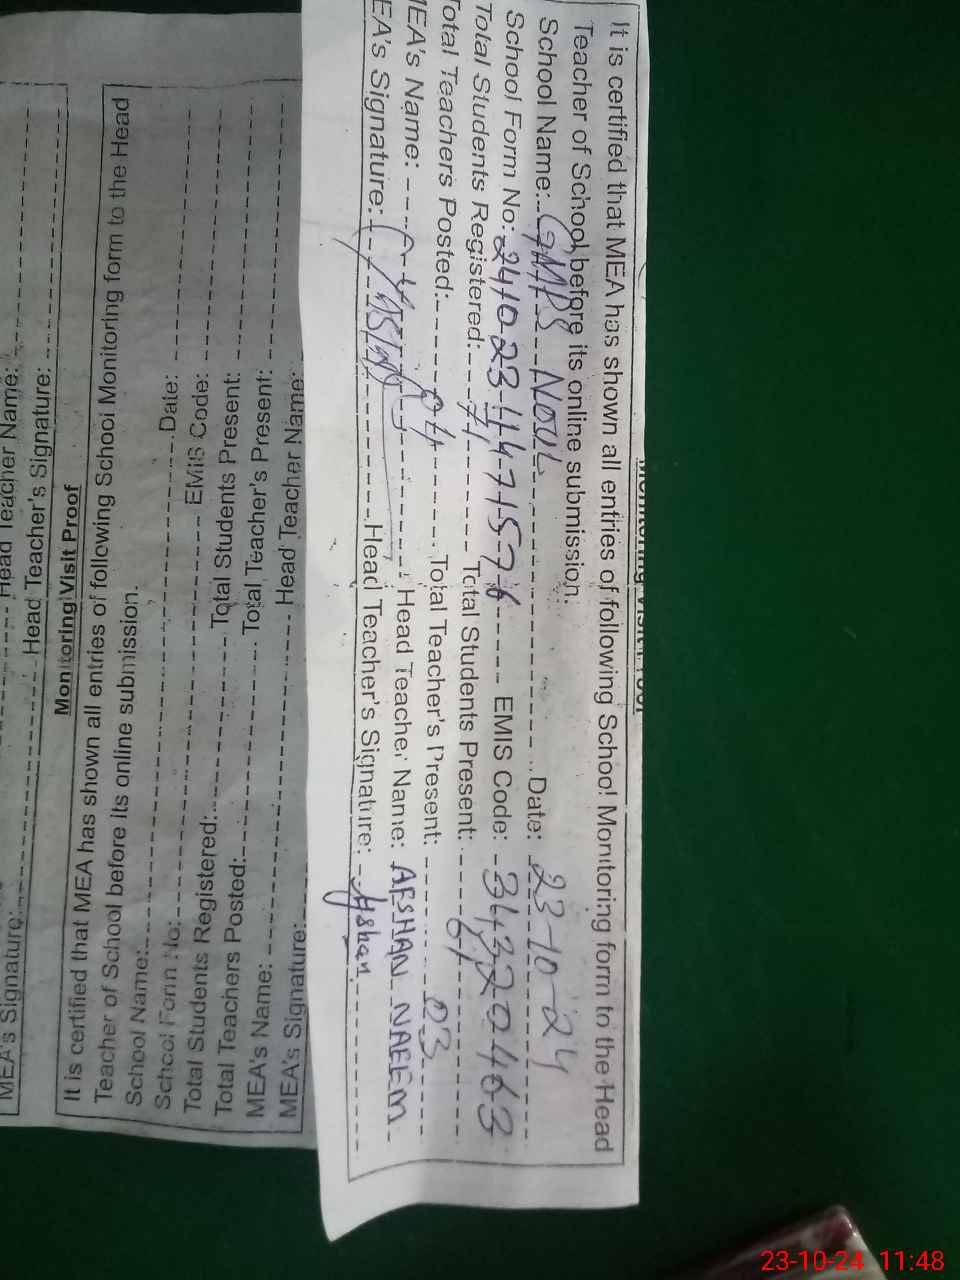 Monitoring Visit Proof
It is certified that MEA has shown all entries of following School Monitoring form to the Head
Teacher of School before its online submission.
School Name: GMPS NOUL Date: 23-10-24
School Form No: EMIS Code: 34320463
Total Students Registered: 71 Total Students Present: 61
Total Teachers Posted: 04 Total Teacher's Present: 03
MEA's Name: Head Teacher Name: AFSHAN NAEEM
MEA's Signature: Head Teacher's Signature: Afshan
Head Teacher Name:
MEA's Signature: Head Teacher's Signature:
Monitoring Visit Proof
It is certified that MEA has shown all entries of following School Monitoring form to the Head
Teacher of School before its online submission.
School Name: Date:
School Form No: EMIS Code:
Total Students Registered: Total Students Present:
Total Teachers Posted: Total Teacher's Present:
MEA's Name: Head Teacher Name:
MEA's Signature:
23-10-24 11:48